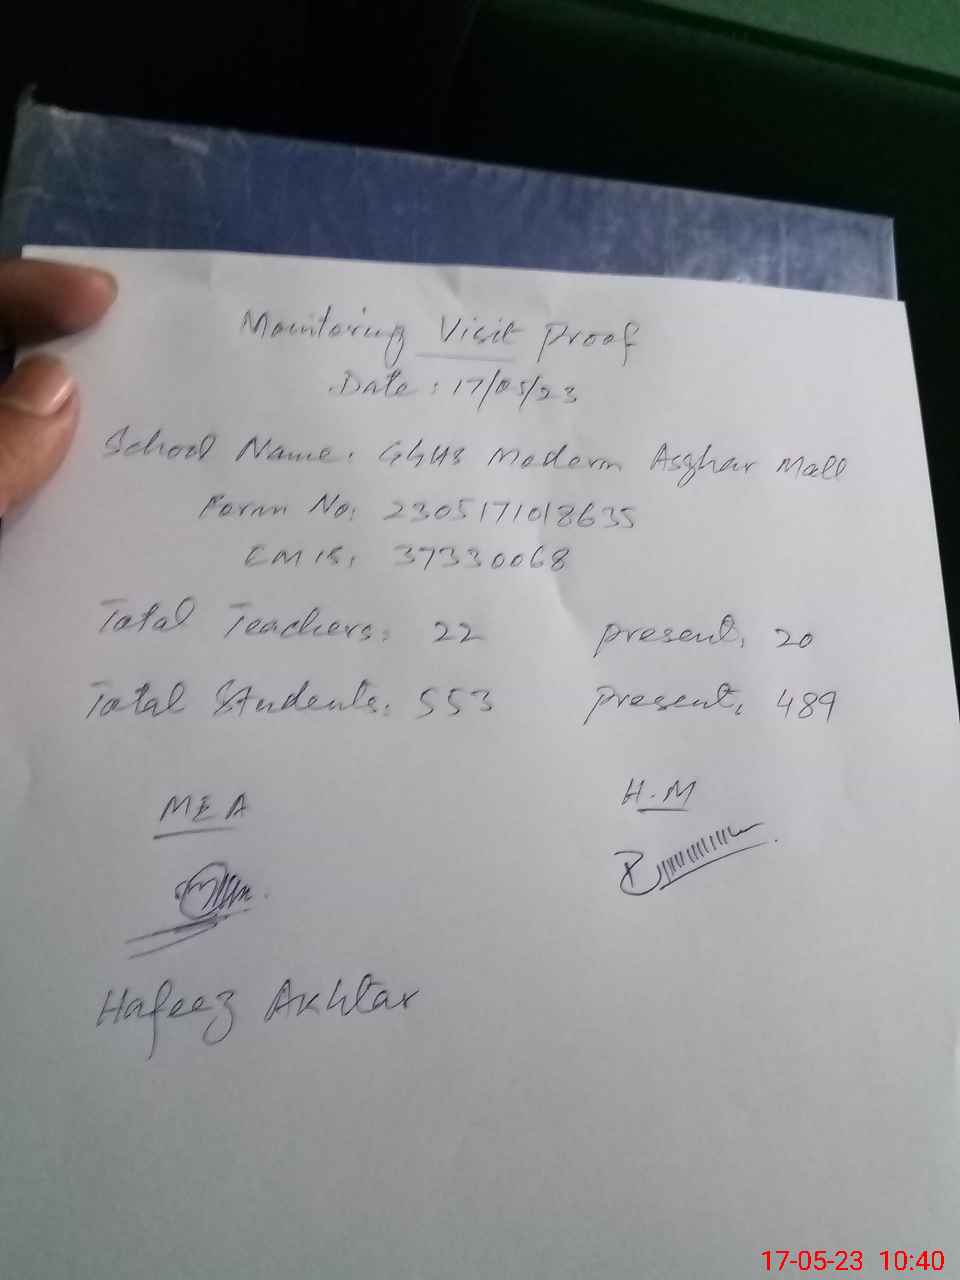 Monitoring Visit Proof
Date: 17/05/23
School Name: GGHS Modern Asghar Mall
Form No: 2305171018635
EMIS: 37330068
Total Teachers: 22 present: 20
Total Students: 553 present: 489
MEA H.M
Hafeez Akhtar
17-05-23 10:40